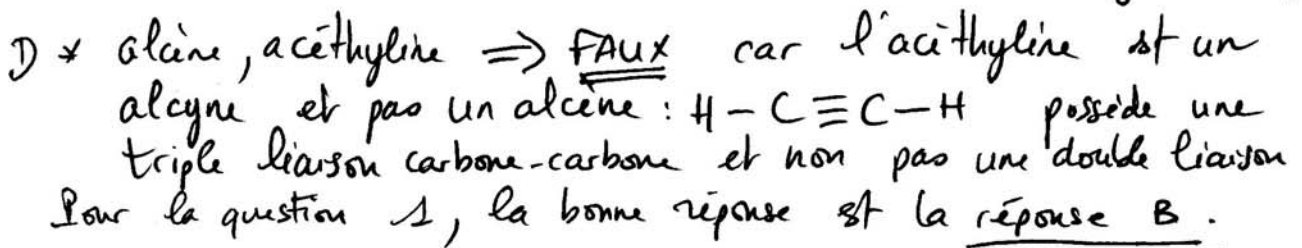 D * alcène, acéthylène => FAUX car l'acéthylène st un
alcyne et pas un alcène : H - C ≡ C - H possède une
triple liaison carbone-carbone et non pas une double liaison
Pour la question 1, la bonne réponse st la réponse B.